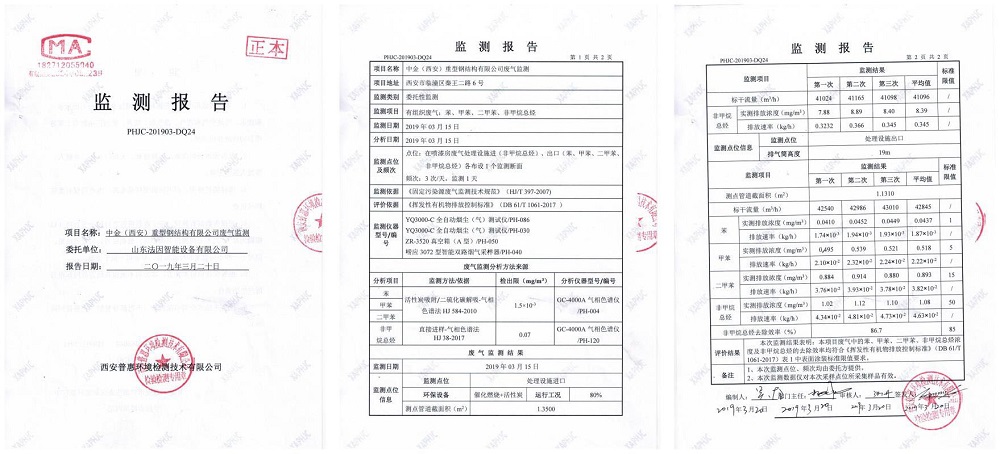 MA
正本
监 测 报 告
PHJC-201903-DQ24
项目名称: 中金（西安）重型钢结构有限公司废气监测
委托单位: 山东法因智能设备有限公司
报告日期: 二〇一九年三月二十日
西安普惠环境检测技术有限公司
监 测 报 告
PHJC-201903-DQ24 第 1 页 共 2 页
项目名称 中金（西安）重型钢结构有限公司废气监测
项目地址 西安市临潼区秦王二路 6 号
监测类别 委托性监测
监测项目 有组织废气：苯、甲苯、二甲苯、非甲烷总烃
监测日期 2019 年 03 月 15 日
分析日期 2019 年 03 月 15 日
监测点位及频次 点位：在喷漆房废气处理设施进（非甲烷总烃）、出口（苯、甲苯、二甲苯、
非甲烷总烃）各布设 1 个监测断面
频次：3 次/天，监测 1 天
监测依据 《固定污染源废气监测技术规范》（HJ/T 397-2007）
评价依据 《挥发性有机物排放控制标准》（DB 61/T 1061-2017 ）
监测仪器型号/编号 YQ3000-C 全自动烟尘（气）测试仪/PH-086
YQ3000-C 全自动烟尘（气）测试仪/PH-030
ZR-3520 真空箱（A 型）/PH-050
崂应 3072 型智能双路烟气采样器/PH-040
废气监测分析方法来源
分析项目 监测方法/依据 检出限（mg/m³） 分析仪器型号/编号
苯
甲苯
二甲苯
活性炭吸附/二硫化碳解吸-气相色谱法 HJ 584-2010 1.5×10⁻³ GC-4000A 气相色谱仪/PH-004
非甲烷总烃 直接进样-气相色谱法 HJ 38-2017 0.07 GC-4000A 气相色谱仪/PH-120
废 气 监 测 结 果
监测日期 2019 年 03 月 15 日
监测点位信息 监测点位 处理设施进口
环保设备 催化燃烧+活性炭 运行工况 80%
测点管道截面积（m²） 1.3500
监 测 报 告
PHJC-201903-DQ24 第 2 页 共 2 页
监测项目 监测结果 标准限值
第一次 第二次 第三次 平均值
标干流量（m³/h） 41024 41165 41098 41096 /
非甲烷总烃 实测排放浓度（mg/m³） 7.88 8.89 8.40 8.39 /
排放速率（kg/h） 0.3232 0.366 0.345 0.345 /
监测点位信息 监测点位 处理设施出口
排气筒高度 19m
监测项目 监测结果 标准限值
第一次 第二次 第三次 平均值
测点管道截面积（m²） 1.1310
标干流量（m³/h） 42540 42986 43010 42845 /
苯 实测排放浓度（mg/m³） 0.0410 0.0452 0.0449 0.0437 1
排放速率（kg/h） 1.74×10⁻³ 1.94×10⁻³ 1.93×10⁻³ 1.87×10⁻³ /
甲苯 实测排放浓度（mg/m³） 0.495 0.539 0.521 0.518 5
排放速率（kg/h） 2.10×10⁻² 2.32×10⁻² 2.24×10⁻² 2.22×10⁻² /
二甲苯 实测排放浓度（mg/m³） 0.884 0.914 0.880 0.893 15
排放速率（kg/h） 3.76×10⁻² 3.93×10⁻² 3.78×10⁻² 3.82×10⁻² /
非甲烷总烃 实测排放浓度（mg/m³） 1.02 1.12 1.10 1.08 50
排放速率（kg/h） 4.34×10⁻² 4.81×10⁻² 4.73×10⁻² 4.63×10⁻² /
非甲烷总烃去除效率（%） 86.7 85
评价结果 本次监测结果表明：本项目废气中的苯、甲苯、二甲苯、非甲烷总烃排放浓
度及非甲烷总烃的去除效率均符合《挥发性有机物排放控制标准》（DB 61/T
1061-2017）表 1 中表面涂装标准限值要求。
备注 1、本次监测点位、频次均由委托方提供。
2、本次监测数据仅对本次采样点位所采集样品有效。
编制人: 部门主任: 审核人: 签发人:
2019年3月20日 2019年3月20日 2019年3月20日 2019年3月20日